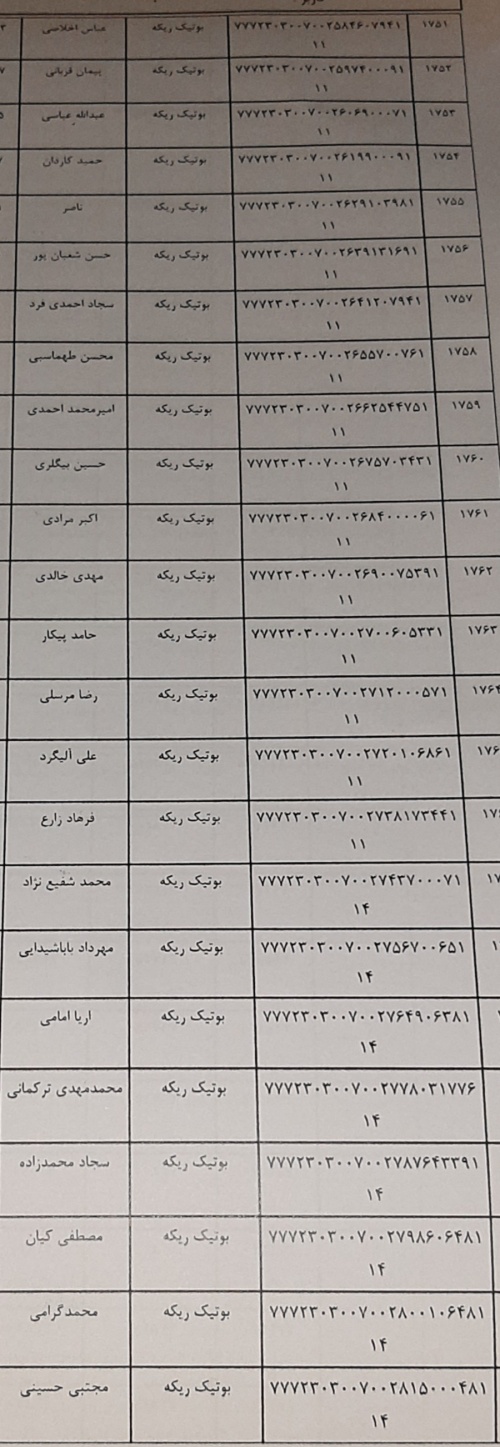 ۱۷۵۱ ۷۷۷۲۳۰۳۰۰۷۰۰۲۵۸۴۶۰۷۹۴۱ بوتیک ریکه عباس اخلاصی
۱۱
۱۷۵۲ ۷۷۷۲۳۰۳۰۰۷۰۰۲۵۹۷۴۰۰۰۹۱ بوتیک ریکه پیمان قربانی
۱۱
۱۷۵۳ ۷۷۷۲۳۰۳۰۰۷۰۰۲۶۰۶۹۰۰۰۷۱ بوتیک ریکه عبدالله عباسی
۱۱
۱۷۵۴ ۷۷۷۲۳۰۳۰۰۷۰۰۲۶۱۹۹۰۰۰۹۱ بوتیک ریکه حمید کاردان
۱۱
۱۷۵۵ ۷۷۷۲۳۰۳۰۰۷۰۰۲۶۲۹۱۰۳۹۸۱ بوتیک ریکه ناصر
۱۱
۱۷۵۶ ۷۷۷۲۳۰۳۰۰۷۰۰۲۶۳۹۱۳۱۶۹۱ بوتیک ریکه حسن شعبان پور
۱۱
۱۷۵۷ ۷۷۷۲۳۰۳۰۰۷۰۰۲۶۴۱۲۰۷۹۴۱ بوتیک ریکه سجاد احمدی فرد
۱۱
۱۷۵۸ ۷۷۷۲۳۰۳۰۰۷۰۰۲۶۵۵۷۰۰۷۶۱ بوتیک ریکه محسن طهماسبی
۱۱
۱۷۵۹ ۷۷۷۲۳۰۳۰۰۷۰۰۲۶۶۲۵۴۴۷۵۱ بوتیک ریکه امیرمحمد احمدی
۱۱
۱۷۶۰ ۷۷۷۲۳۰۳۰۰۷۰۰۲۶۷۵۷۰۳۴۳۱ بوتیک ریکه حسین بیگلری
۱۱
۱۷۶۱ ۷۷۷۲۳۰۳۰۰۷۰۰۲۶۸۴۰۰۰۰۶۱ بوتیک ریکه اکبر مرادی
۱۱
۱۷۶۲ ۷۷۷۲۳۰۳۰۰۷۰۰۲۶۹۰۰۷۵۳۹۱ بوتیک ریکه مهدی خالدی
۱۱
۱۷۶۳ ۷۷۷۲۳۰۳۰۰۷۰۰۲۷۰۰۶۰۵۳۳۱ بوتیک ریکه حامد پیکار
۱۱
۱۷۶۴ ۷۷۷۲۳۰۳۰۰۷۰۰۲۷۱۲۰۰۰۵۷۱ بوتیک ریکه رضا مرسلی
۱۱
۷۷۷۲۳۰۳۰۰۷۰۰۲۷۲۰۱۰۶۸۶۱ بوتیک ریکه علی آلیگرد
۱۱
۷۷۷۲۳۰۳۰۰۷۰۰۲۷۳۸۱۷۳۴۴۱ بوتیک ریکه فرهاد زارع
۱۱
۷۷۷۲۳۰۳۰۰۷۰۰۲۷۴۳۷۰۰۰۷۱ بوتیک ریکه محمد شفیع نژاد
۱۴
۷۷۷۲۳۰۳۰۰۷۰۰۲۷۵۶۷۰۰۶۵۱ بوتیک ریکه مهرداد باباشیدایی
۱۴
۷۷۷۲۳۰۳۰۰۷۰۰۲۷۶۴۹۰۶۳۸۱ بوتیک ریکه اریا امامی
۱۴
۷۷۷۲۳۰۳۰۰۷۰۰۲۷۷۸۰۳۱۷۷۶ بوتیک ریکه محمدمهدی ترکمانی
۱۴
۷۷۷۲۳۰۳۰۰۷۰۰۲۷۸۷۶۴۳۳۹۱ بوتیک ریکه سجاد محمدزاده
۱۴
۷۷۷۲۳۰۳۰۰۷۰۰۲۷۹۸۶۰۶۴۸۱ بوتیک ریکه مصطفی کیان
۱۴
۷۷۷۲۳۰۳۰۰۷۰۰۲۸۰۰۱۰۶۴۸۱ بوتیک ریکه محمدگرامی
۱۴
۷۷۷۲۳۰۳۰۰۷۰۰۲۸۱۵۰۰۰۴۸۱ بوتیک ریکه مجتبی حسینی
۱۴